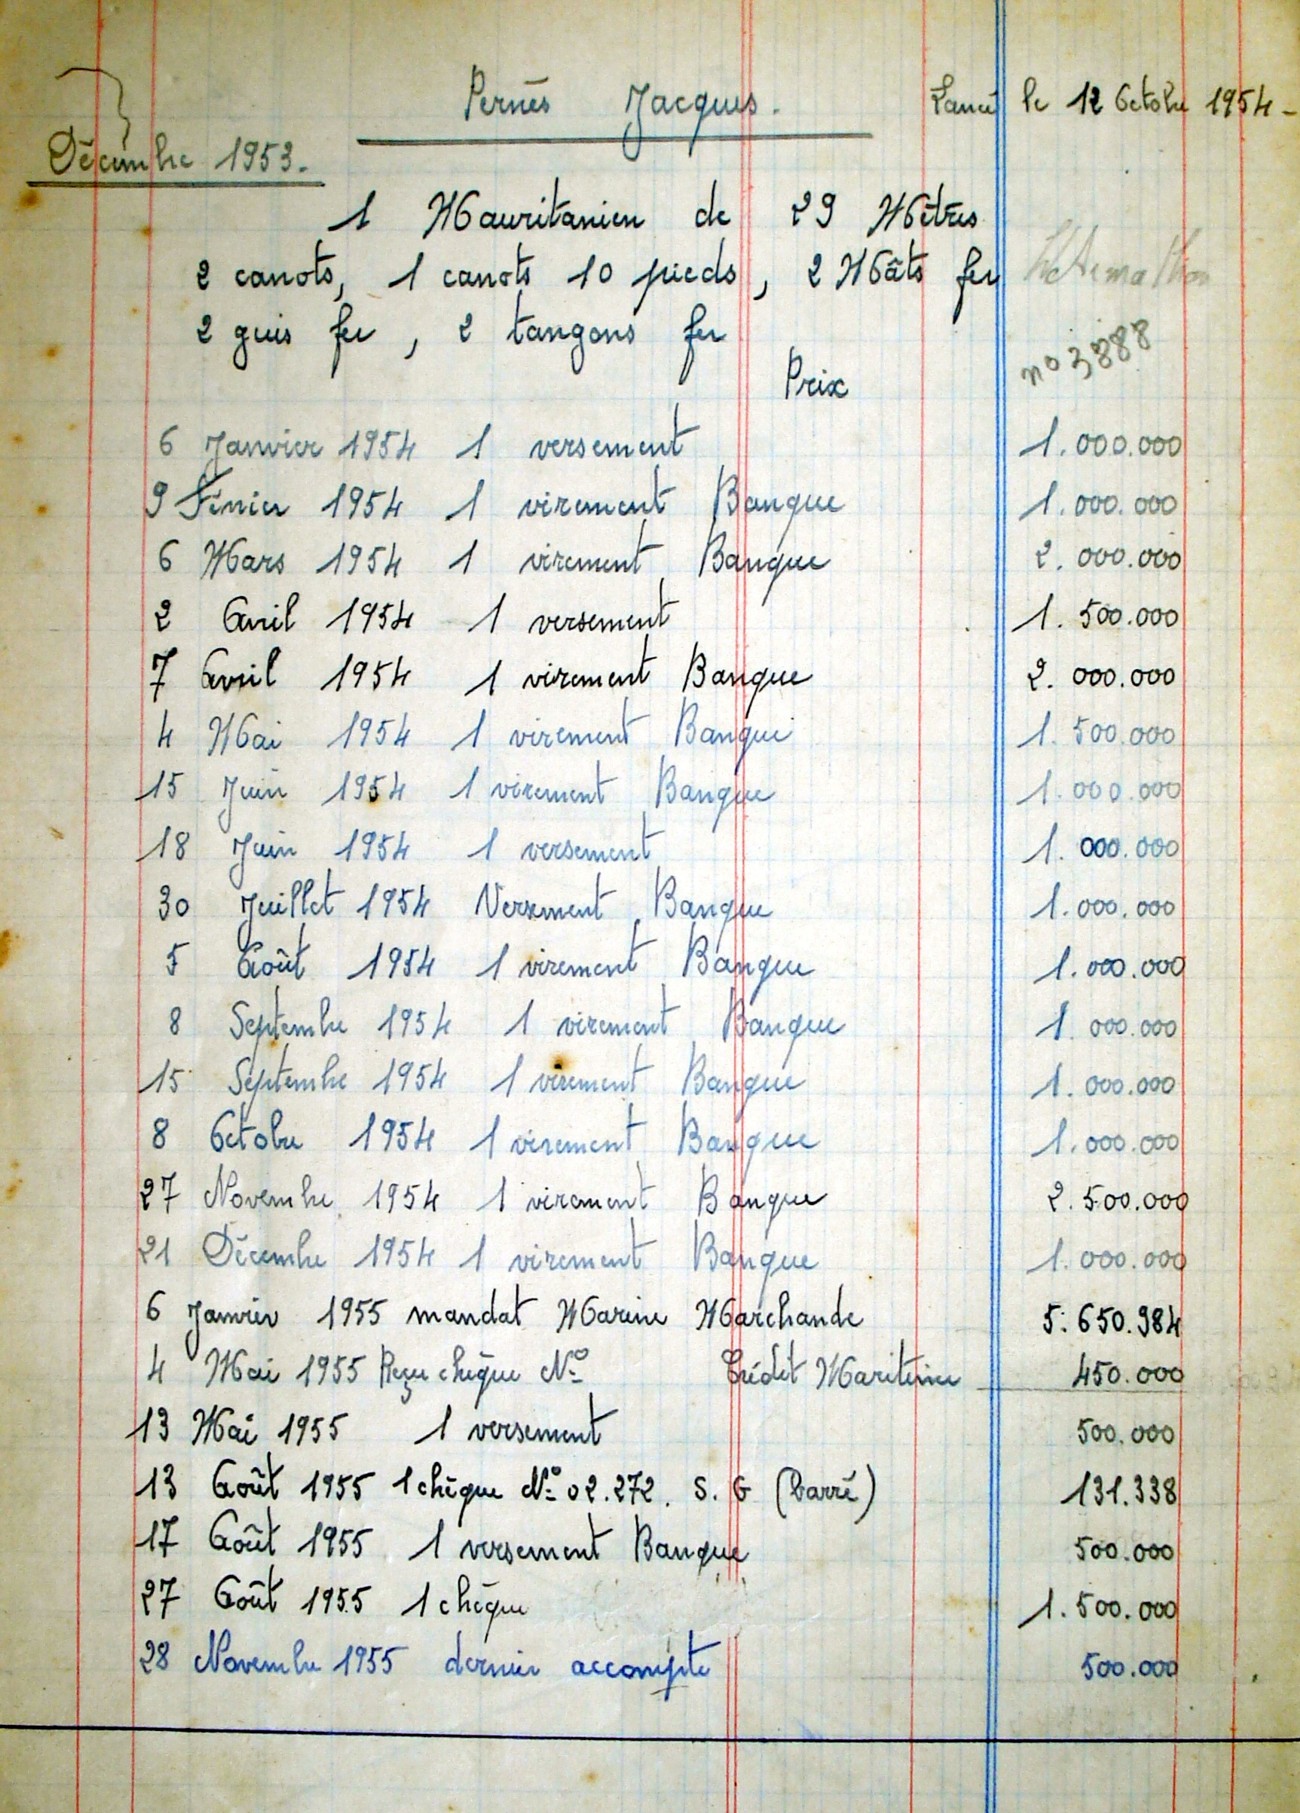 Pernès Jacques. Lancé le 12 Octobre 1954 -
Décembre 1953.
1 Mauritanien de 29 Mètres
2 canots, 1 canots 10 pieds, 2 Mâts fer
2 guis fer, 2 tangons fer
n° 3888
Prix
6 Janvier 1954 1 versement 1.000.000
9 Février 1954 1 virement Banque 1.000.000
6 Mars 1954 1 virement Banque 2.000.000
2 Avril 1954 1 versement 1.500.000
7 Avril 1954 1 virement Banque 2.000.000
4 Mai 1954 1 virement Banque 1.500.000
15 Juin 1954 1 virement Banque 1.000.000
18 Juin 1954 1 versement 1.000.000
30 Juillet 1954 Versement Banque 1.000.000
5 Août 1954 1 virement Banque 1.000.000
8 Septembre 1954 1 virement Banque 1.000.000
15 Septembre 1954 1 virement Banque 1.000.000
8 Octobre 1954 1 virement Banque 1.000.000
27 Novembre 1954 1 virement Banque 2.500.000
21 Décembre 1954 1 virement Banque 1.000.000
6 Janvier 1955 mandat Marine Marchande 5.650.984
4 Mai 1955 Reçu chèque N° Crédit Maritime 450.000
13 Mai 1955 1 versement 500.000
13 Août 1955 1 chèque N° 02.272. S. G (Barré) 131.338
17 Août 1955 1 versement Banque 500.000
27 Août 1955 1 chèque 1.500.000
28 Novembre 1955 dernier accompte 500.000